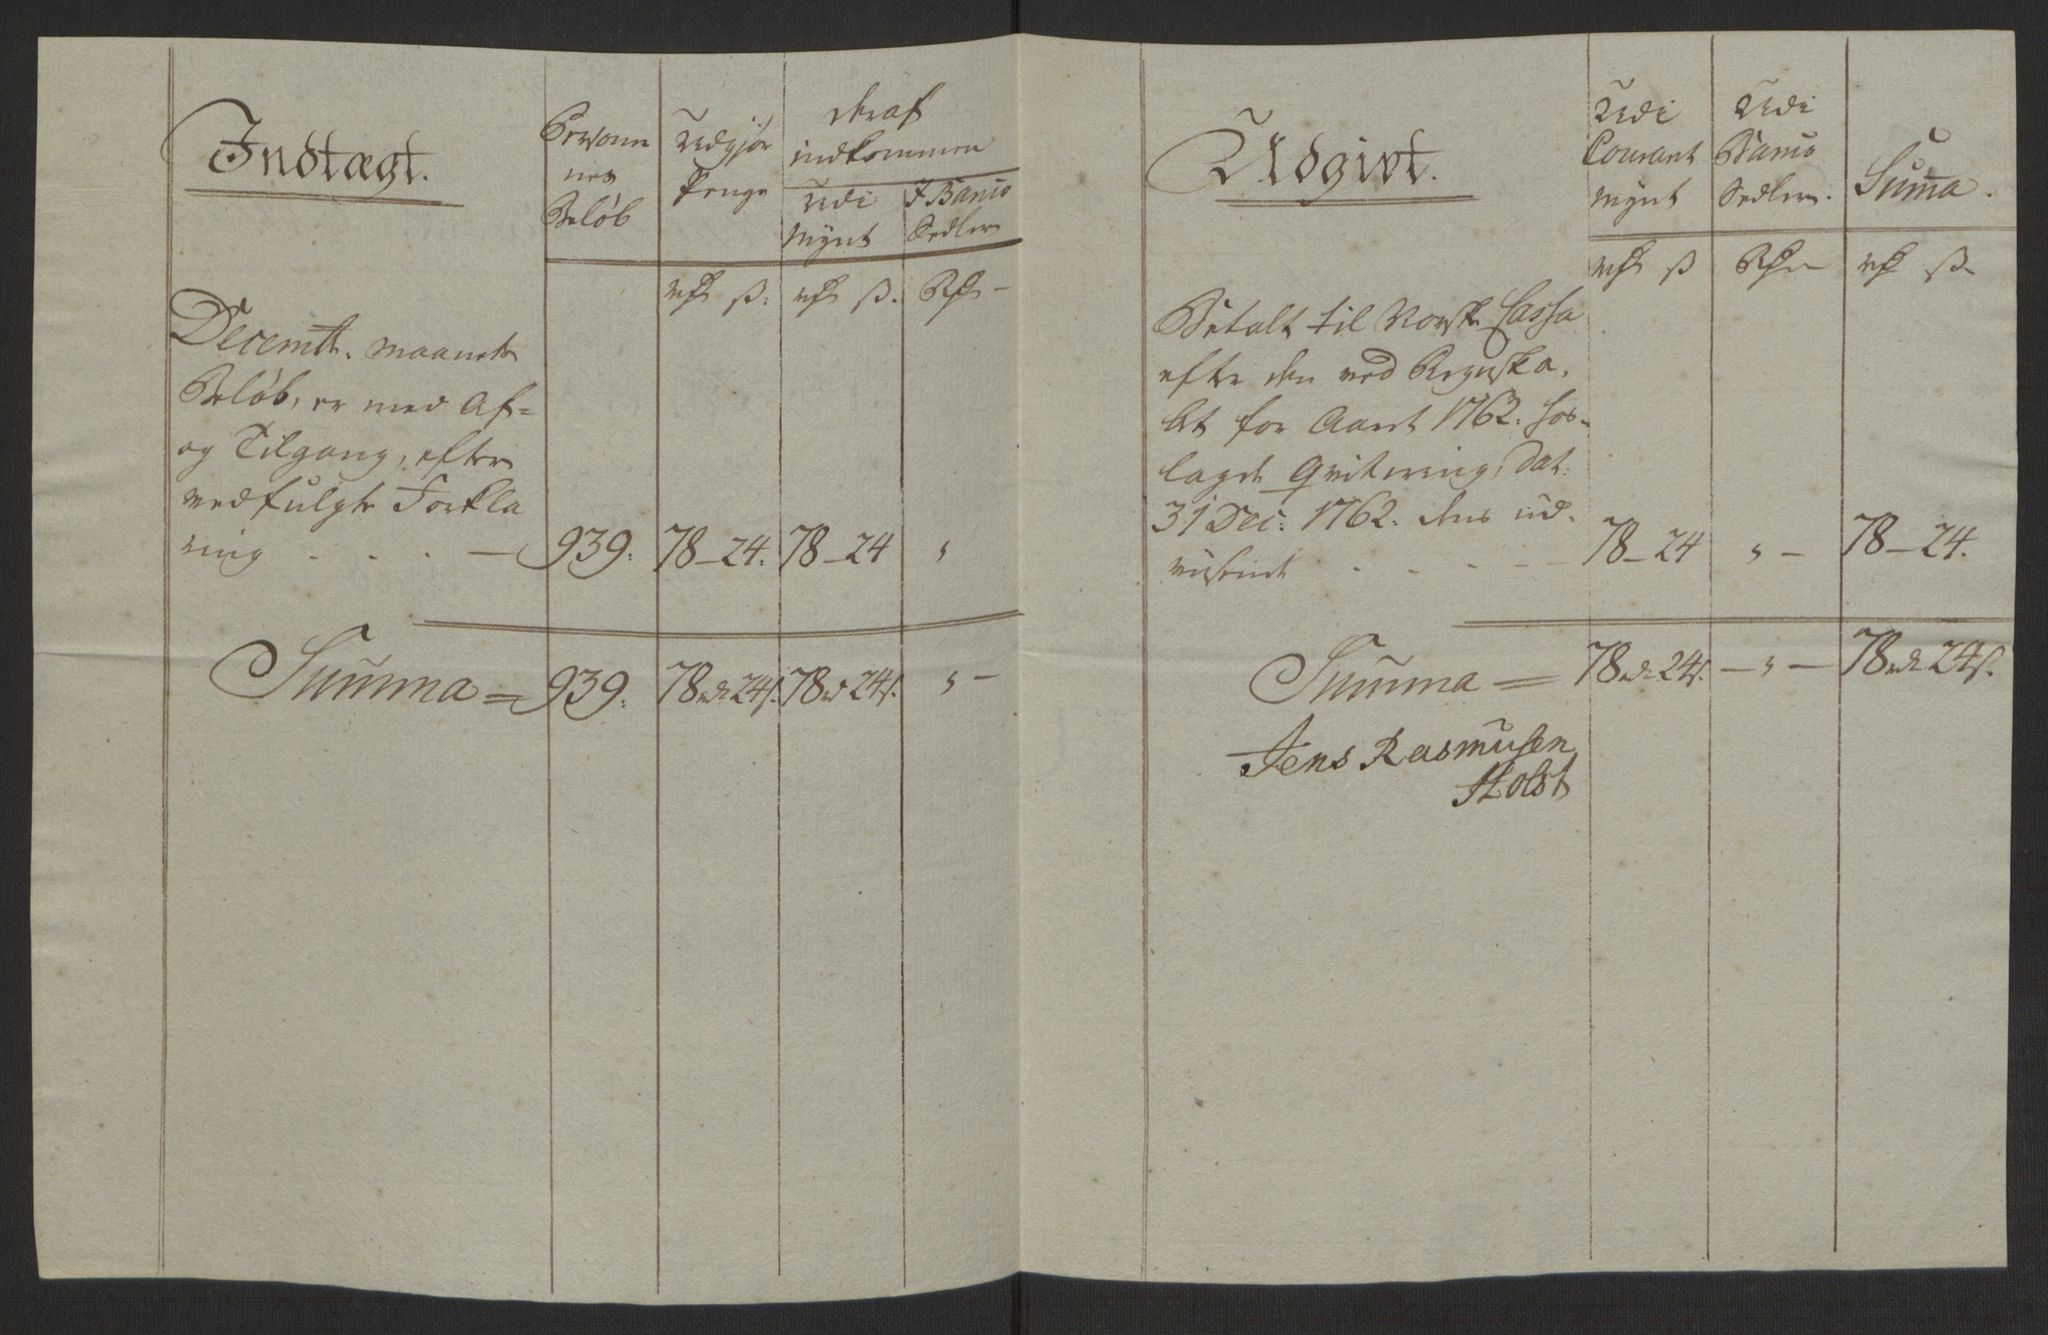 Indtægt.
Personer
nes
Beløb
Udgjør
Penge
deraf
indkommen
Udi
Mynt
J Banco
Sedler
rdr ß. rdr ß. Rdr –
Decembr. Maaneds
Beløb, er med Af=
og Tilgang, efter
vedfulgte Forkla
ring - - - — 939. 78 – 24. 78 – 24 "
Summa = 939. 78 rdr 24 ß. 78 rd 24 ß. " –
Udgivt.
Udi
Courant
Mynt
Udi
Banco
Sedler.
Summa.
rdr ß Rdr – rdr ß
Betalt til Norske Cassa
efter den ved Regnska-
bet for Aaret 1762. hos-
lagde Qvitering, Dat:
31 Dec: 1762. dens ud-
viisende - - - - - 78 – 24 " – 78 – 24.
Summa = 78 rdr 24 ß. – " – 78 rdr 24 ß.
Jens Rasmusen
Holst